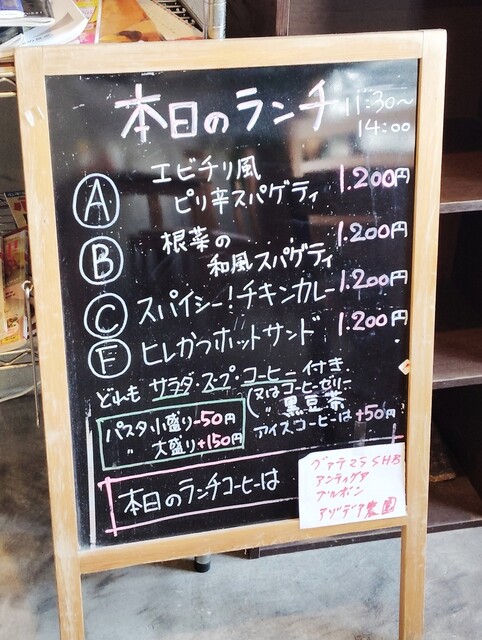 本日のランチ 11:30〜14:00
Ⓐ エビチリ風
ピリ辛スパゲティ 1.200円
Ⓑ 根菜の
和風スパゲティ 1.200円
Ⓒ スパイシー!チキンカレー 1.200円
Ⓕ ヒレかつホットサンド 1.200円
どれも サラダ・スープ・コーヒー付き
(又はコーヒーゼリー
〃 黒豆茶
アイスコーヒーは+50円
パスタ小盛り-50円
〃 大盛り+150円
本日のランチコーヒーは
グァテマラSHB
アンティグア
ブルボン
アゾデア農園